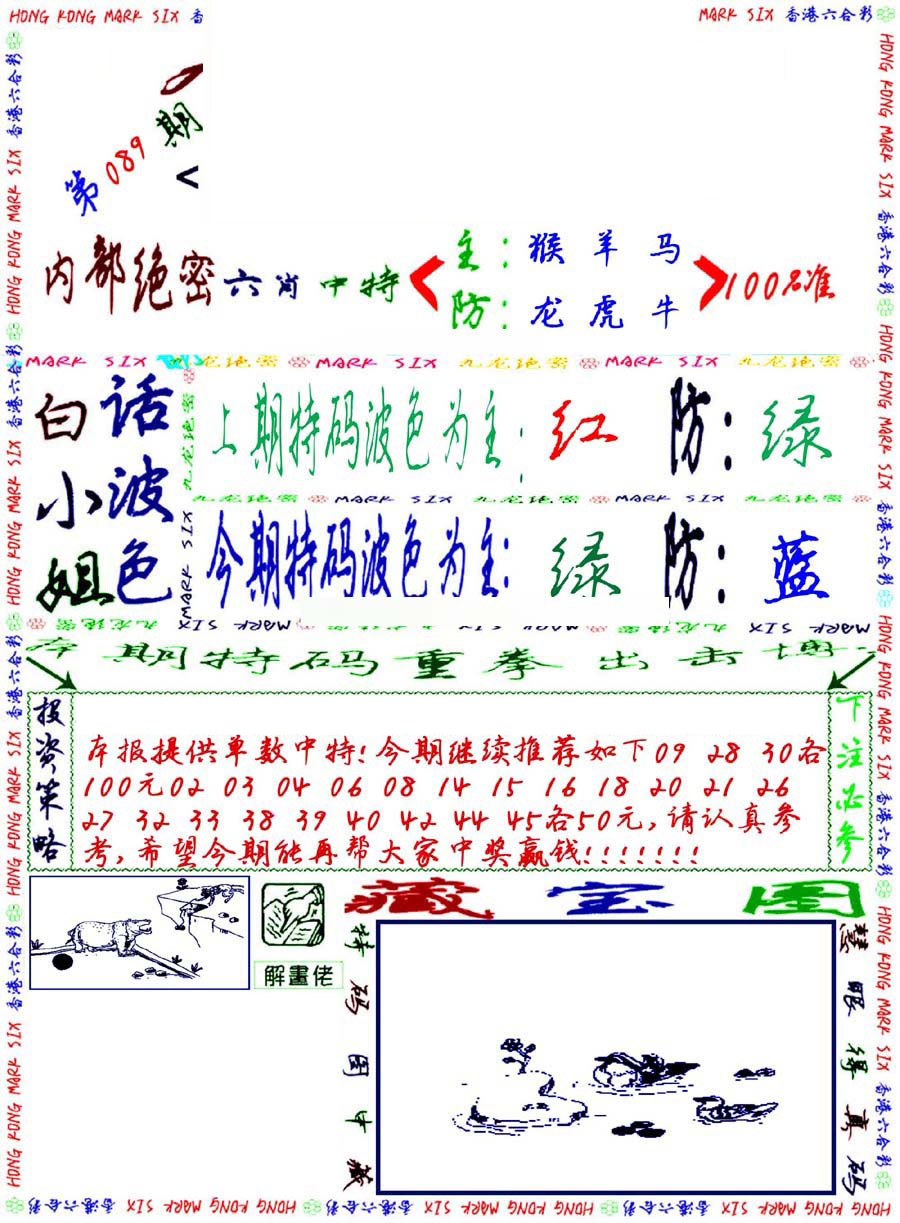 HONG KONG MARK SIX 香
MARK SIX 香港六合彩
第089期
内部绝密六肖中特
主：猴 羊 马
防：龙 虎 牛
100%准
MARK SIX 九龙绝密 MARK SIX 九龙绝密 MARK SIX 九龙绝密
白话小波姐色
上期特码波色为主：红 防：绿
九龙绝密 MARK SIX 九龙绝密 MARK SIX 九龙绝密
今期特码波色为主：绿 防：蓝
期特码重拳出击
投资策略
本报提供单数中特！今期继续推荐如下09 28 30各
100元02 03 04 06 08 14 15 16 18 20 21 26
27 32 33 38 39 40 42 44 45各50元，请认真参
考，希望今期能再帮大家中奖赢钱！！！！！！！
下注必参
解畫佬
藏宝图
特码图中藏
慧眼得真码
HONG KONG MARK SIX 香港六合彩